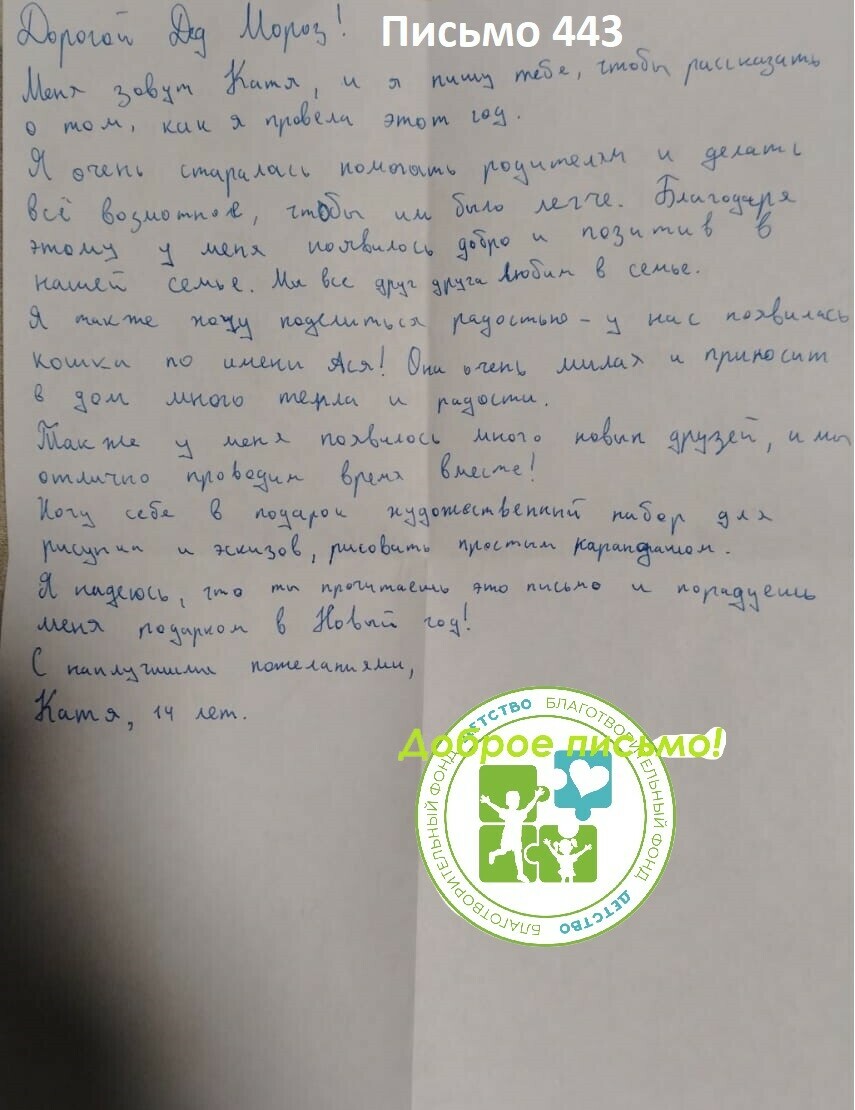 Дорогой Дед Мороз!
Письмо 443
Меня зовут Катя, и я пишу тебе, чтобы рассказать
о том, как я провела этот год.
Я очень старалась помогать родителям и делать
всё возможное, чтобы им было легче. Благодаря
этому у меня появилось добро и позитив в
нашей семье. Мы все друг друга любим в семье.
Я также хочу поделиться радостью - у нас появилась
кошка по имени Ася! Она очень милая и приносит
в дом много тепла и радости.
Также у меня появилось много новых друзей, и мы
отлично проводим время вместе!
Хочу себе в подарок художественный набор для
рисунка и эскизов, рисовать простым карандашом.
Я надеюсь, что ты прочитаешь это письмо и порадуешь
меня подарком в Новый год!
С наилучшими пожеланиями,
Катя, 14 лет.
Доброе письмо!
БЛАГОТВОРИТЕЛЬНЫЙ ФОНД ДЕТСТВО
БЛАГОТВОРИТЕЛЬНЫЙ ФОНД ДЕТСТВО